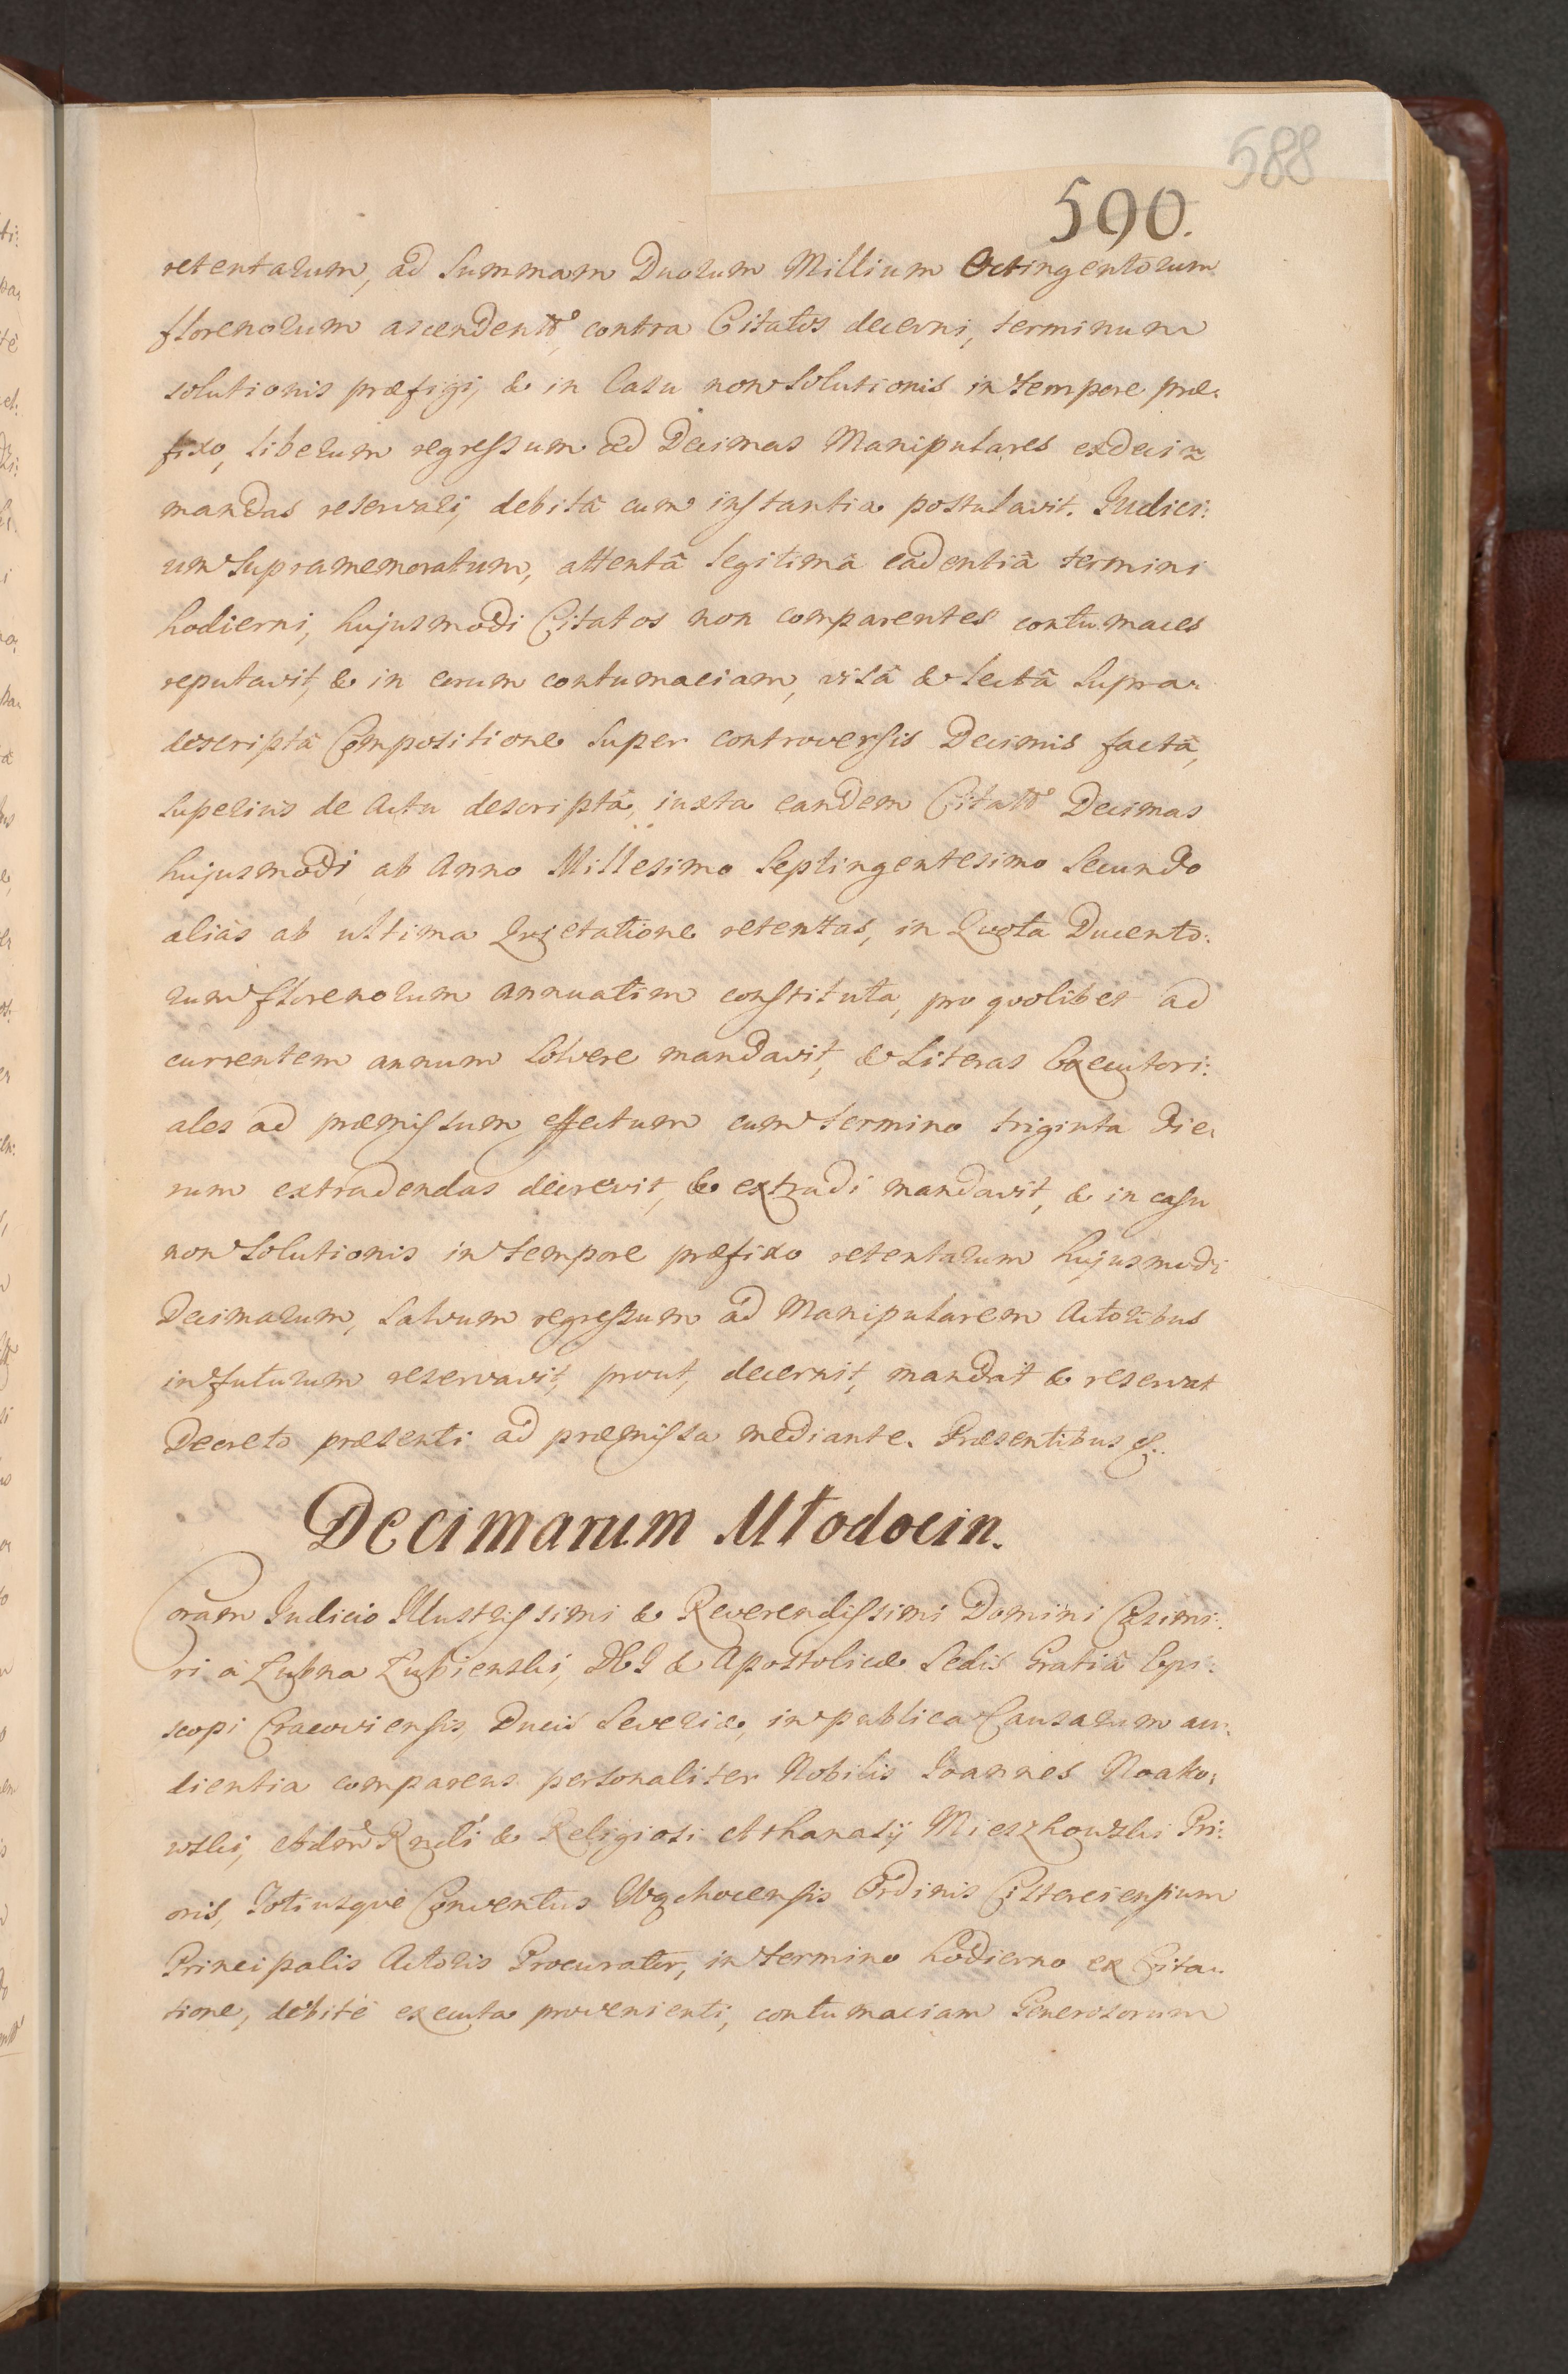 588
590.
retentarum, ad Summam Duorum Millium Octingentorum
florenorum ascendent. contra Citatos decerni, terminum
solutionis præfigi, & in Casu non Solutionis in tempore præ:
fixo, liberum regressum ad Decimas Manipulares exdeci=
mandas reservari, debitâ cum instantia postulavit. Judici:
um Supramemoratum, attentâ legitimâ cadentiâ termini
hodierni, hujusmodi Citatos non comparentes contumaces
reputavit, & in eorum contumaciam, visâ & lectâ supra=
descriptâ Compositione super controversis Decimis factâ,
superius de Actu descriptâ, iuxta eandem Citat. Decimas
hujusmodi ab Anno Millesimo Septingentesimo Secundo
aliàs ab ultima Quietatione retentas, in Quota Ducento:
rum florenorum annuatim constituta, pro quolibet ad
currentem annum Solvere mandavit, & Literas Executori:
ales ad præmissum effectum cum termino triginta die:
rum extradendas decrevit, & extradi mandavit, & in casu
non Solutionis in tempore præfixo retentarum hujusmodi
Decimarum, Salvum regressum ad Manipularem Actoribus
in futurum reservavit, prout, decernit, mandat & reservat
Decreto præsenti ad præmissa mediante. Præsentibus &.
Decimarum Młodocin.
Coram Judicio Illustrissimi & Reverendissimi Domini Casimi:
ri à Łubna Łubienski, DEI & Apostolicæ Sedis Gratiâ Epi:
scopi Cracoviensis, Ducis Severiæ, in publica Causarum au:
dientia comparens personaliter Nobilis Joannes Noako:
wski, Admd Rndi & Religiosi Athanasij Mieszkowski Pri:
oris, Totiusque Conventus Wąchocensis Ordinis Cisterciensium
Principalis Actoris Procurator, in termino hodierno ex Cita=
tione, debitè executa provenienti, contumaciam Generosorum